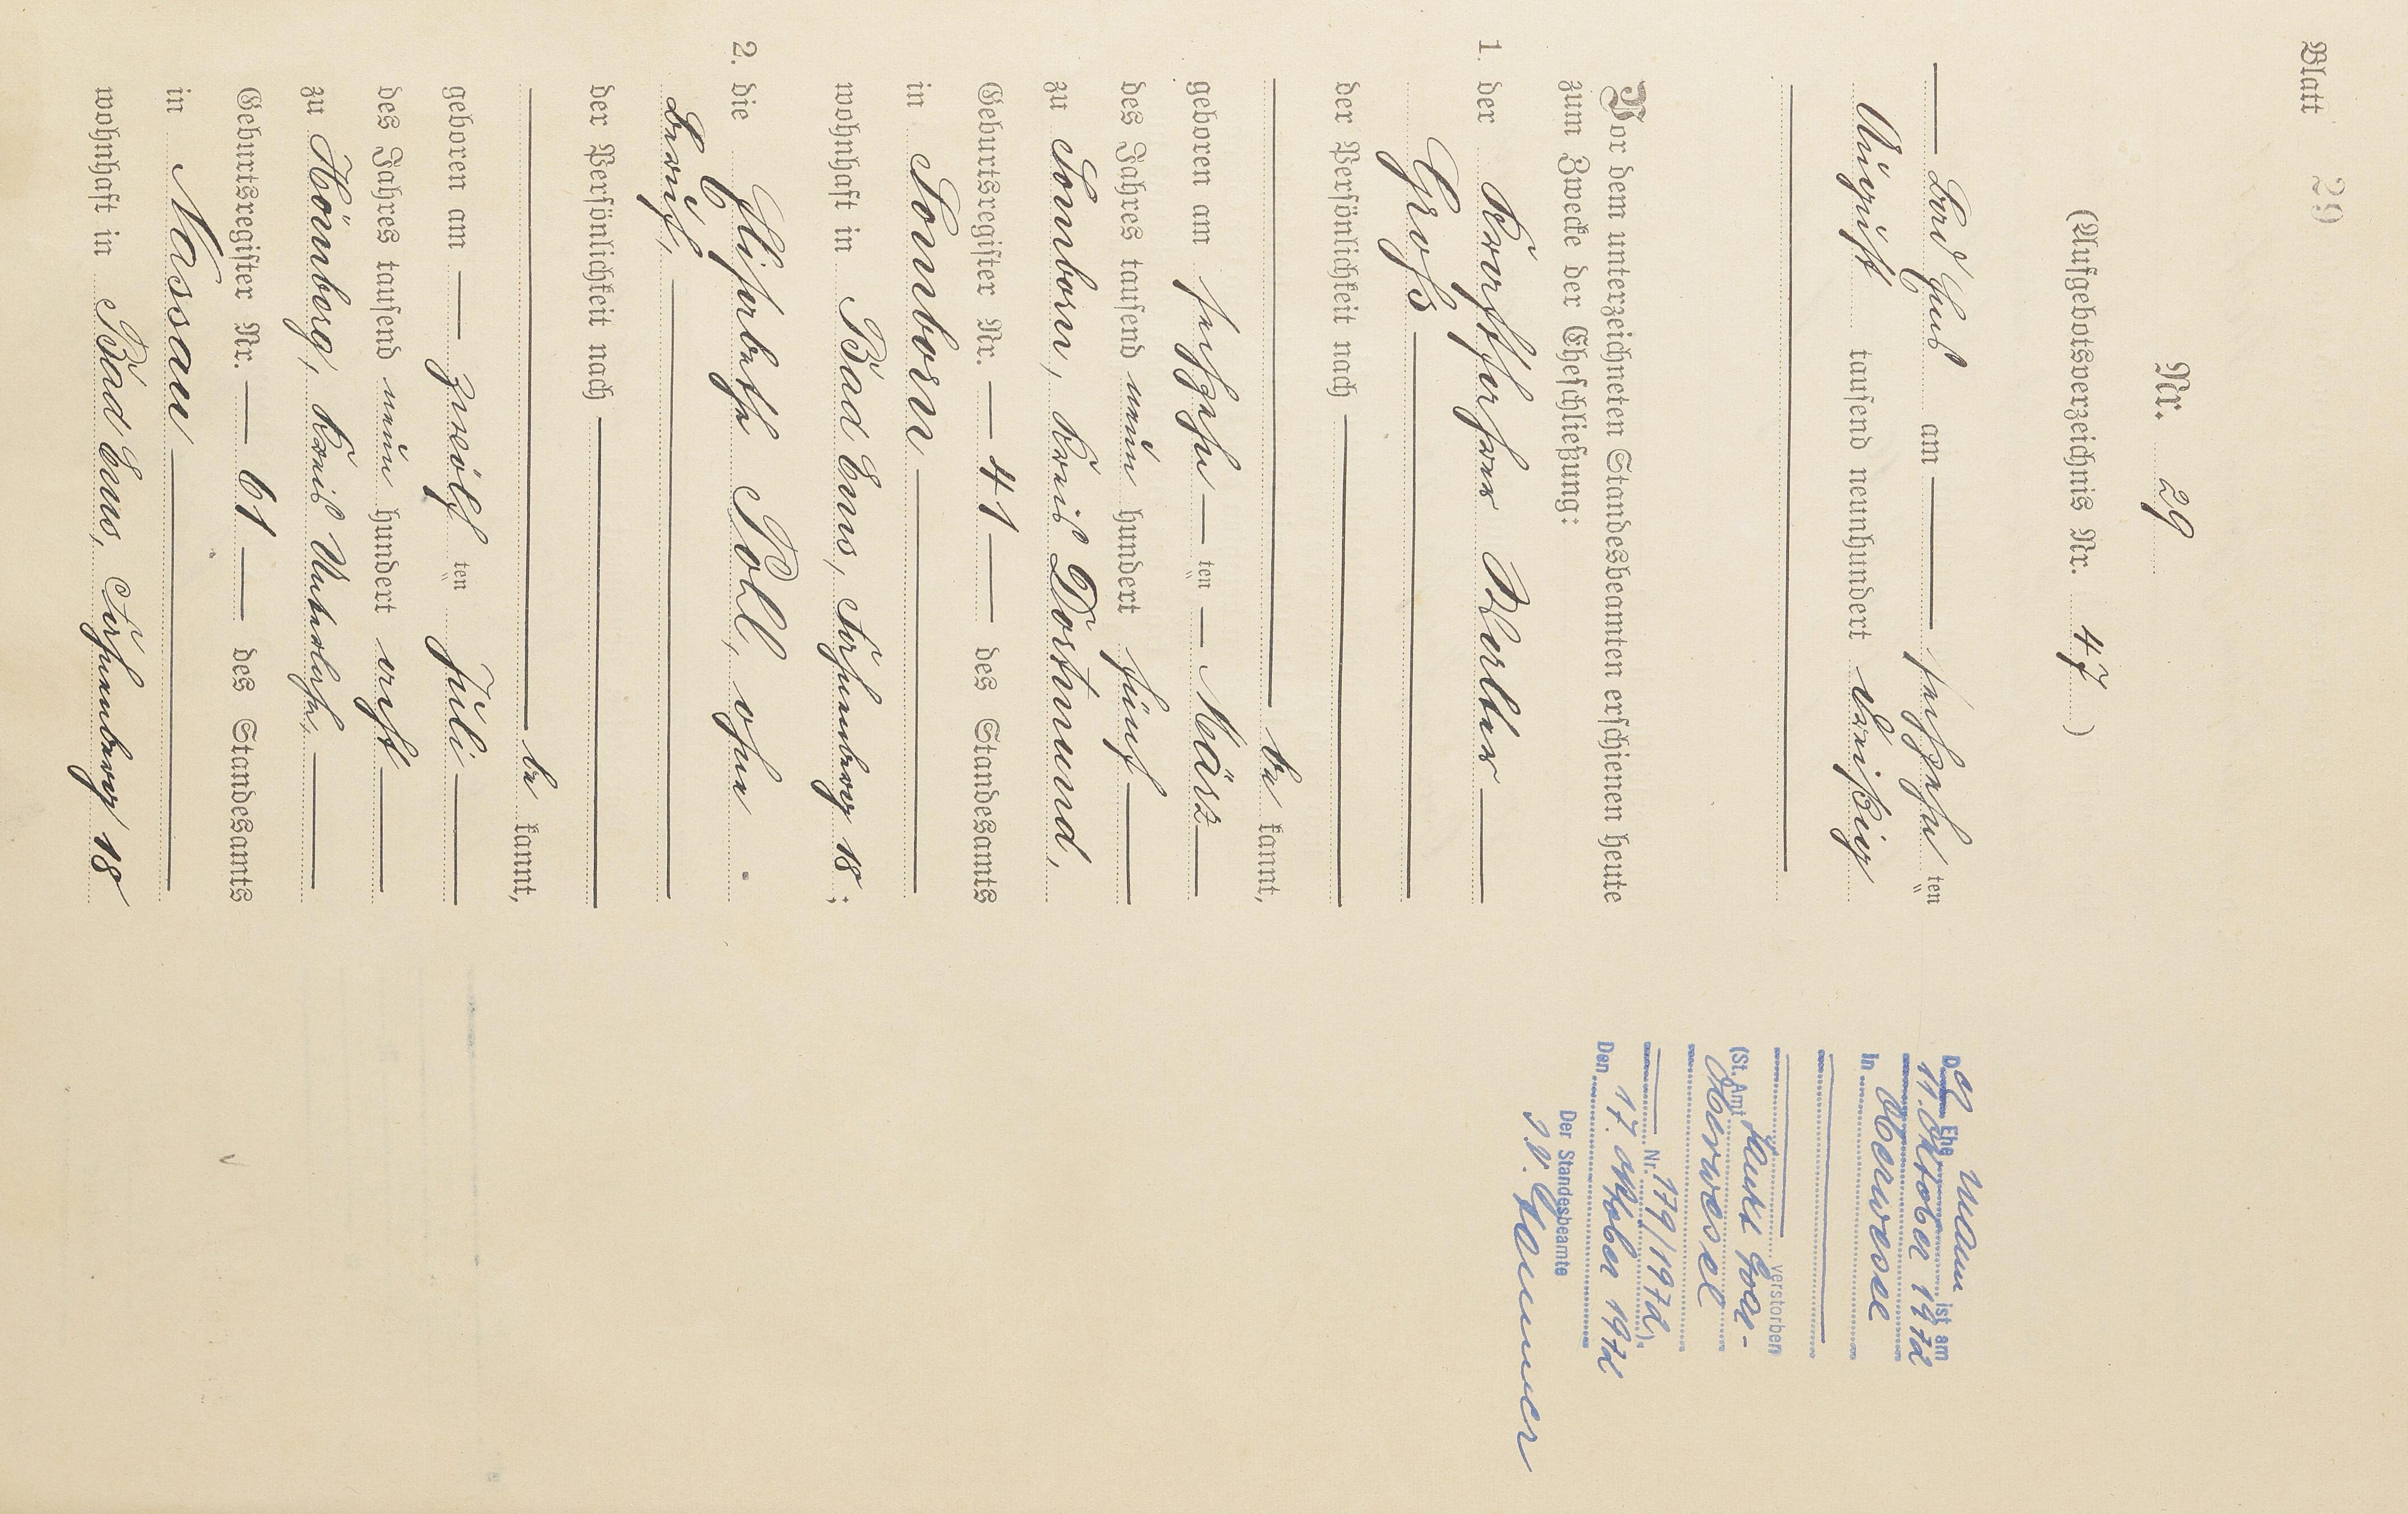 Blatt 29
Nr. 29
(Aufgebotsverzeichnis Nr. 47)
Bad Ems am sechzehn ten
August tausend neunhundert dreißig
Vor dem unterzeichneten Standesbeamten erschienen heute
zum Zwecke der Eheschließung:
1. der Kraftfahrer Walter
Groß
der Persönlichkeit nach
be kannt,
geboren am sechzehn ten März
des Jahres tausend neun hundert fünf
zu Somborn, Kreis Dortmund,
Geburtsregister Nr. 41 des Standesamts
in Somborn
wohnhaft in Bad Ems, 18;
2. die Elisabeth Poll, ohne
Beruf,
der Persönlichkeit nach
be kannt,
geboren am zwölf ten Juli
des Jahres tausend neun hundert acht
zu Hömberg, Kreis Unterlahn,
Geburtsregister Nr. 61 des Standesamts
in Nassau
wohnhaft in Bad Ems, 18
D Ehe mann ist am
11. Oktober 1972
in Oberwesel
verstorben
(St. Amt Sankt Goar-
Oberwesel
Nr. 179/1972).
Den 17. Oktober 1972
Der Standesbeamte